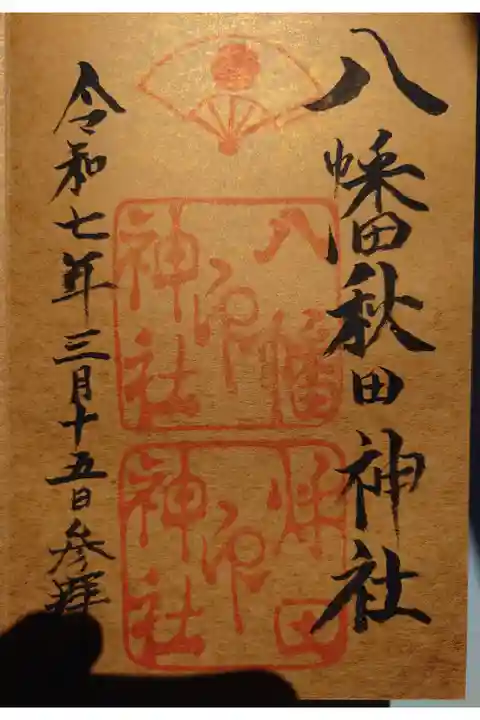 八幡秋田神社
八幡
神社
印
秋田
神社
印
令和七年三月十五日参拝